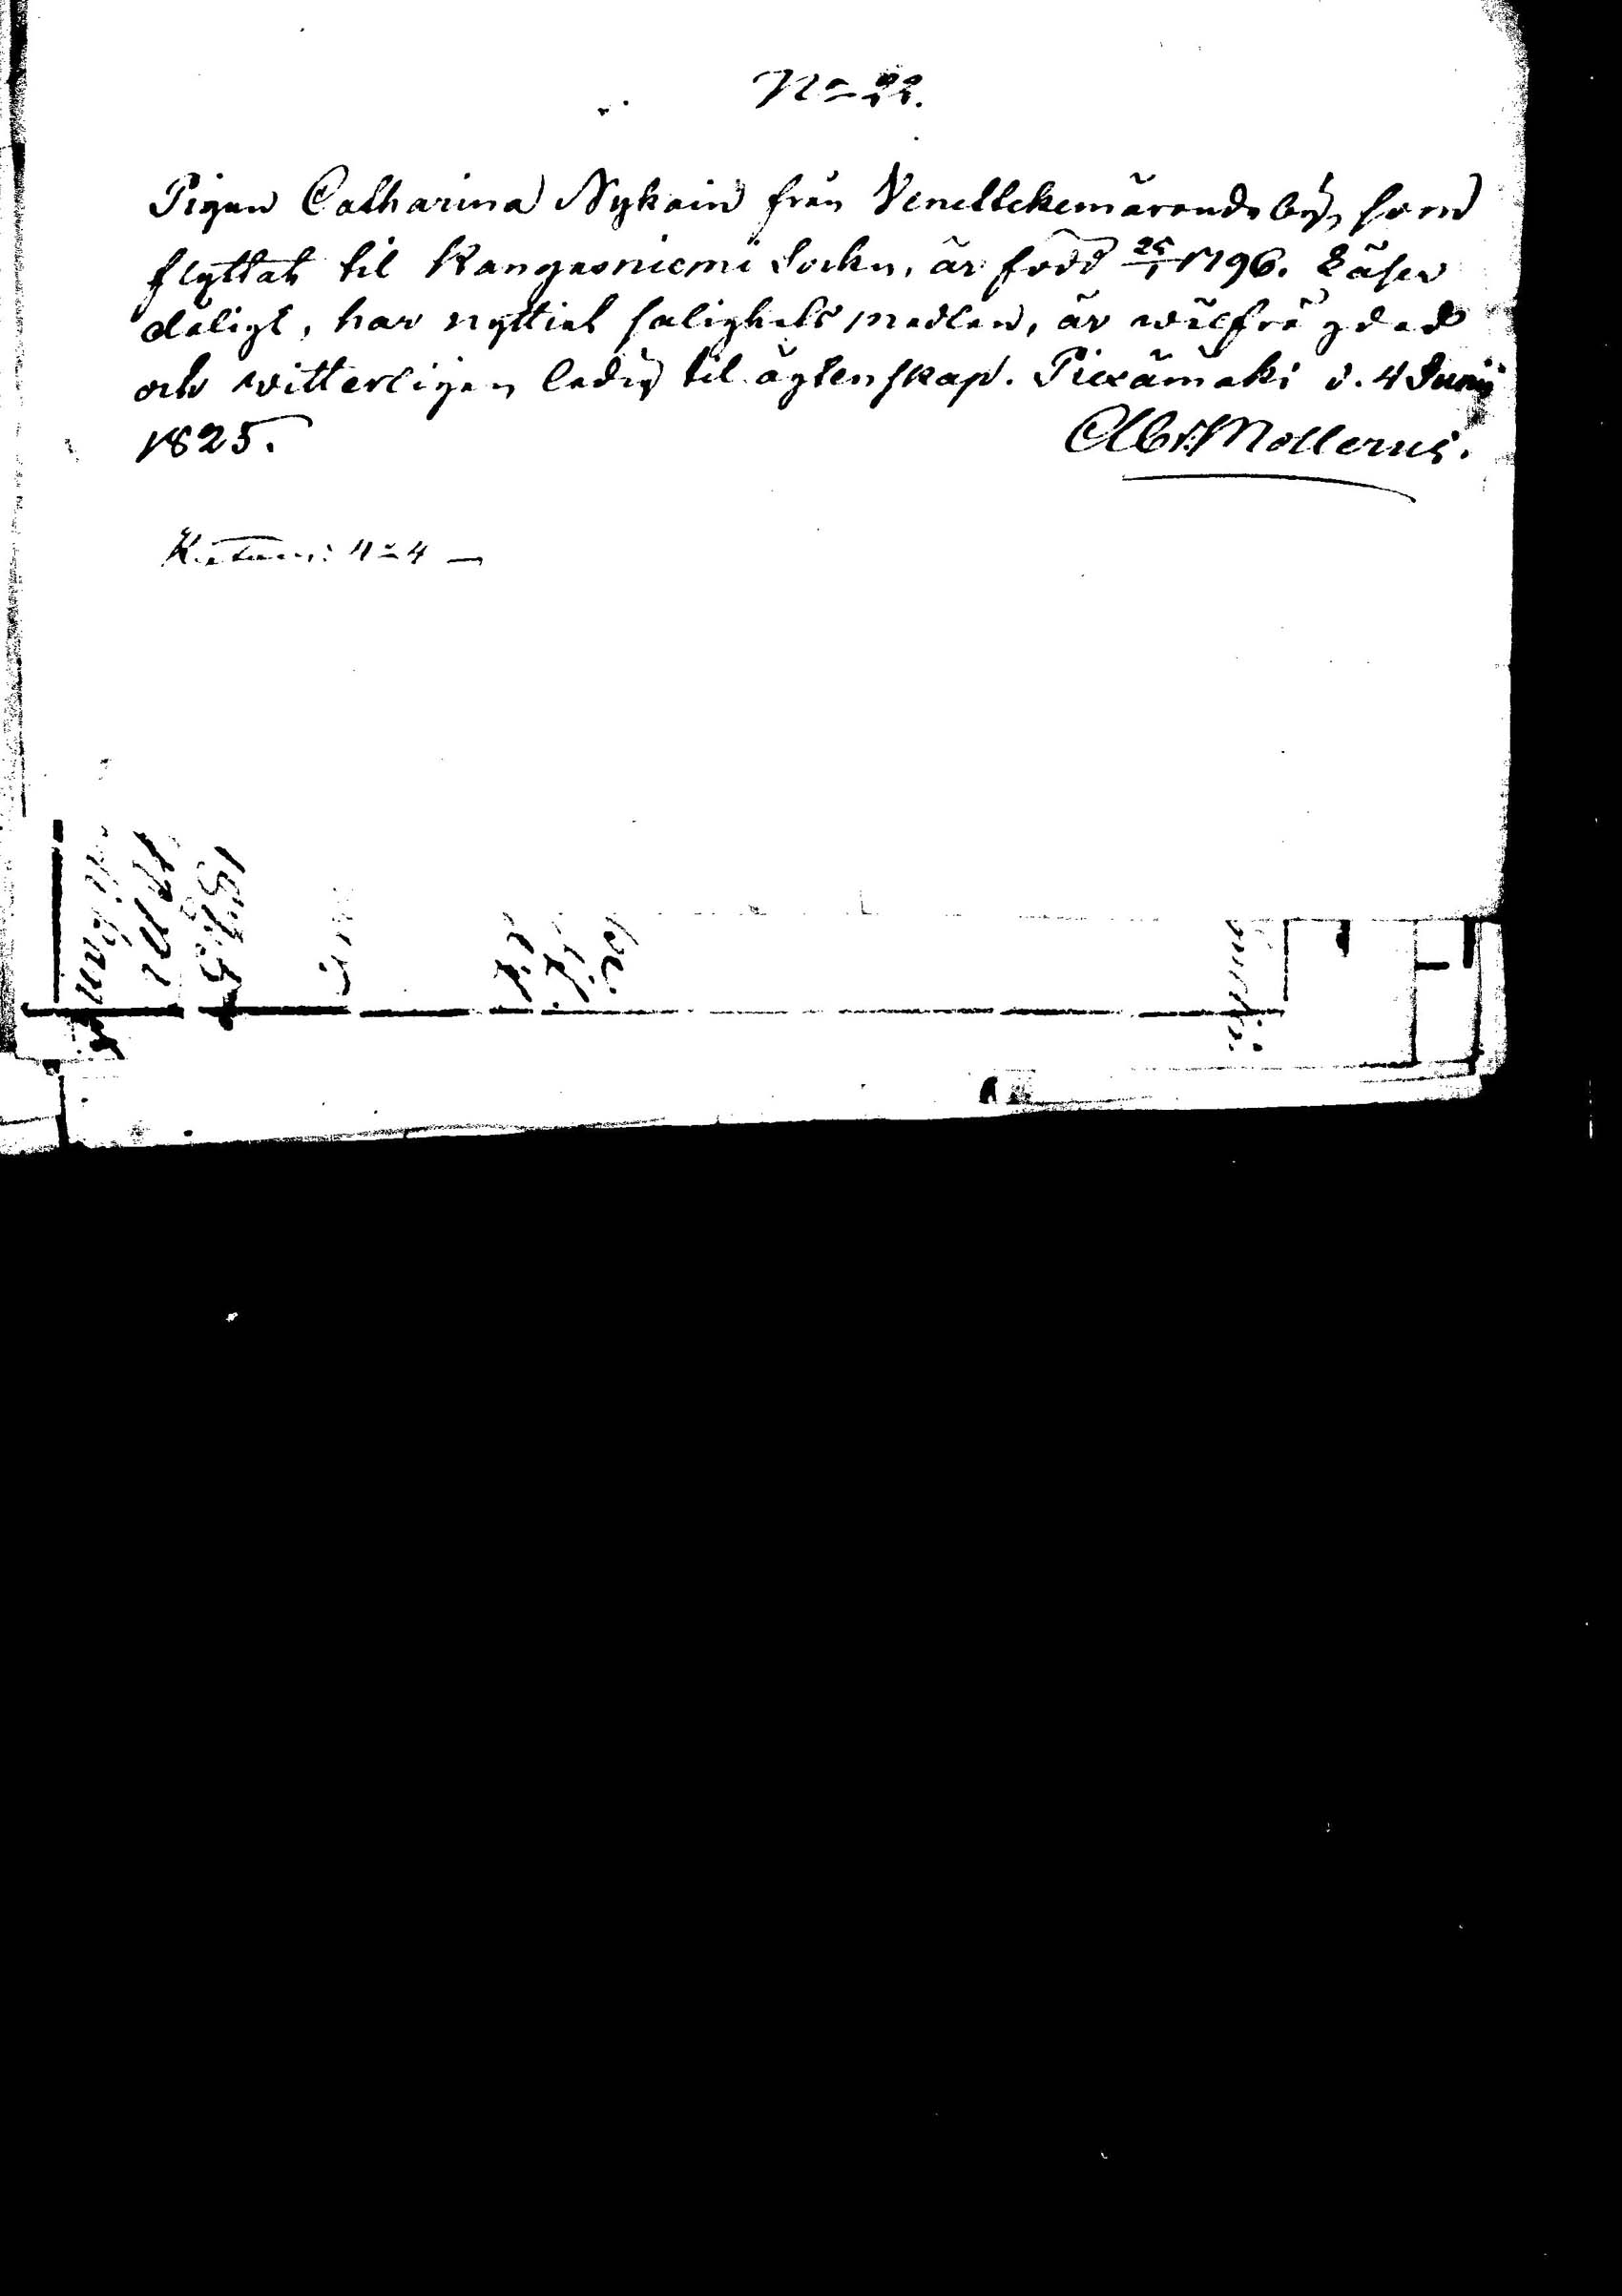 No 22.
Pigan Catharina Nykain från Venettekemärands by, som
flyttat til Kangasniemi Sockn, är född 25/1 1796. Läser
dåligt, har nyttiat salighets medlen, är wälfrägdad
och witterligen ledig til ägtenskap. Piexämäki d. 4 Junii
1825. Abr. Mollerus.
No 4
1825